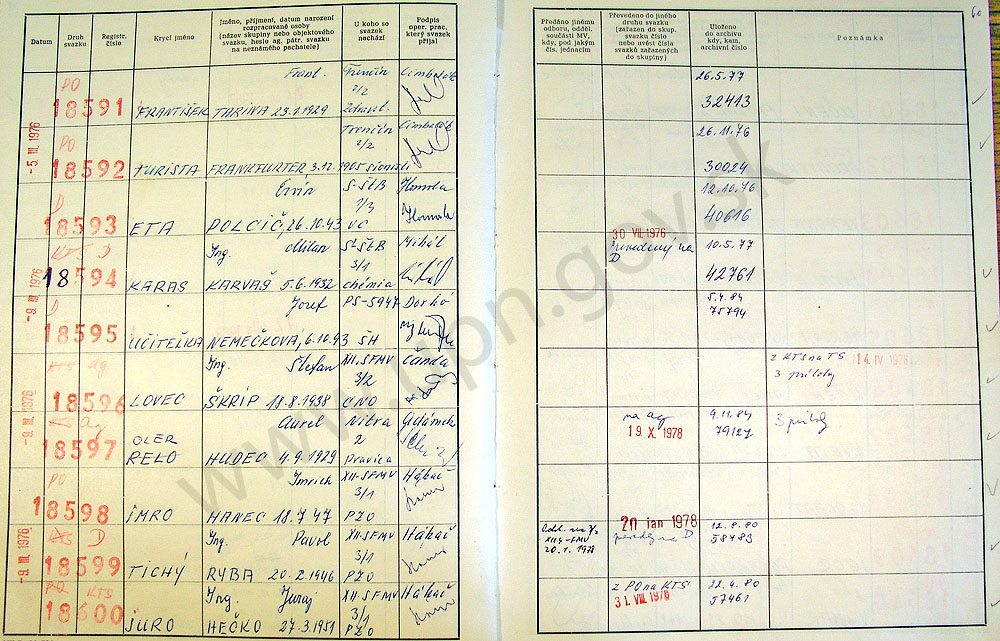 60
Datum
Druh svazku
Registr. číslo
Krycí jméno
Jméno, příjmení, datum narození
rozpracované osoby
(název skupiny nebo objektového
svazku, heslo ag. pátr. svazku
na neznámého pachatele)
U koho se
svazek
nachází
Podpis
oper. prac.
který svazek
přijal
Předáno jinému
odboru, odděl.
součásti MV,
kdy, pod jakým
čís. jednacím
Převedeno do jiného
druhu svazku
(zařazen do skup.
svazku číslo
nebo uvést čísla
svazků zařazených
do skupiny)
Uloženo
do archívu
kdy, kam,
archívní číslo
Poznámka
PO Frant. Trenčín
2/2
18591 FRANTIŠEK TARINA 23.1.1929
26.5.77
32413
-5. III. 1976
PO Trenčín
2/2
18592 TURISTA FRANKFURTER 3.12.1905
26.11.76
30024
D Ervín S-ŠtB Homola
18593 ETA POLCIČ, 26.10.43 VC
12.10.76
40616
KTS D Ing. Milan S-ŠtB Mihál
3/1
18594 KARAS KARVAŠ 5.6.1932 chémia
30 VII. 1976
D
10.5.77
42761
-9. III. 1976
D Jozef PS-5947
18595 UČITELKA NEMEČKOVÁ, 6.10.43 ŠH
5.4.84
75794
KTS ag Ing. Štefan XII.SFMV Čanda
3/2
18596 LOVEC ŠKRIP 18.8.1938
z KTS na TS 14. IV. 1976
3 prílohy
-9. III. 1976
KS ag Aurel Nitra
2
18597 OLER
RELO HUDEC 4.9.1929
na ag
19. X. 1978
9.11.84
3 príloh
PO Imrich XII-SFMV Hábač
3/1
18598 IMRO HANEC 18.7.47 PZO
KTS D Ing. Pavol XII.SFMV Hábač
3/1
18599 TICHÝ RYBA 20.2.1946 PZO
-9. III. 1976
20. 1. 1978
20 jan 1978
na D
12.8.80
58483
PO KTS Ing. Juraj XII-SFMV Hábač
3/1
18600 JURO HEČKO 27.3.1951 PZO
z PO na KTS
31. VIII. 1976
22.4.80
57461
www.upn.gov.sk